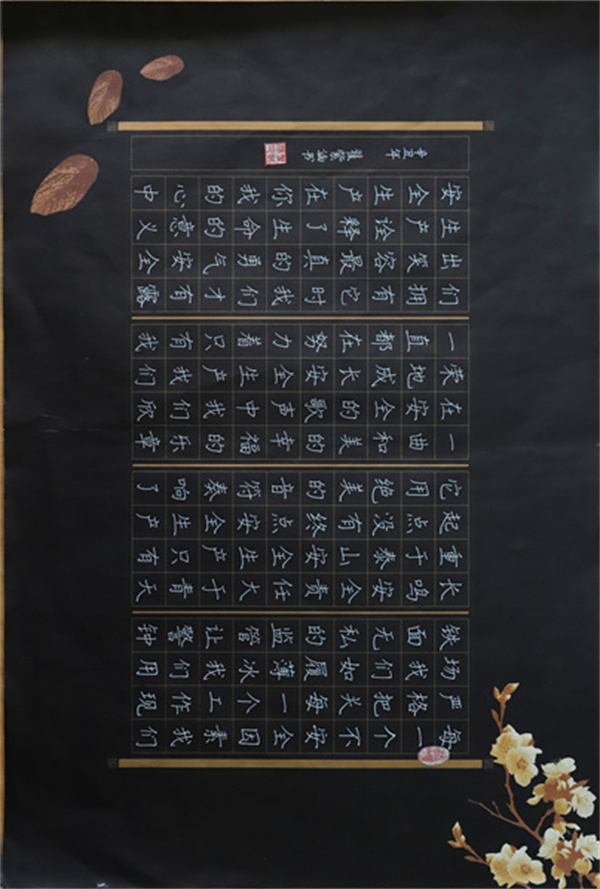 每一个不安全因素我们
严格把关每一个工作现
场我们如履薄冰我们用
铁面无私的监管让警钟
长鸣安全责任大于青天
重于泰山安全生产只有
起点没有终点安全生产
它用绝美的音符奏响了
一曲和美的幸福的乐章
在安全的歌声中我们欣
荣地成长安全生产我们
一直都在努力着只有我
们拥有它时我们才有露
出笑容最真的勇气安全
生产诠释了生命的意义
安全生产在你我的心中
辛丑年 张紫涵书